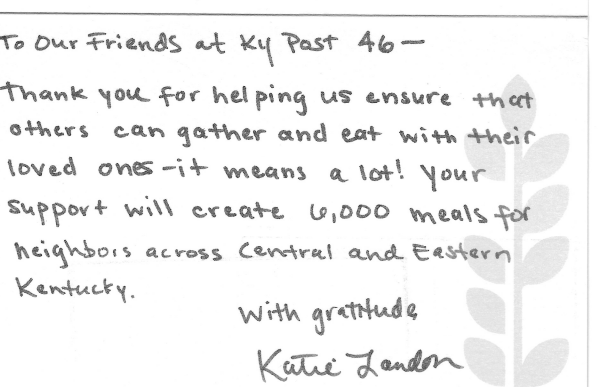 To Our Friends at Ky Post 46—
Thank you for helping us ensure that
others can gather and eat with their
loved ones-it means a lot! Your
support will create 6,000 meals for
neighbors across Central and Eastern
Kentucky.
With gratitude
Katie Landon